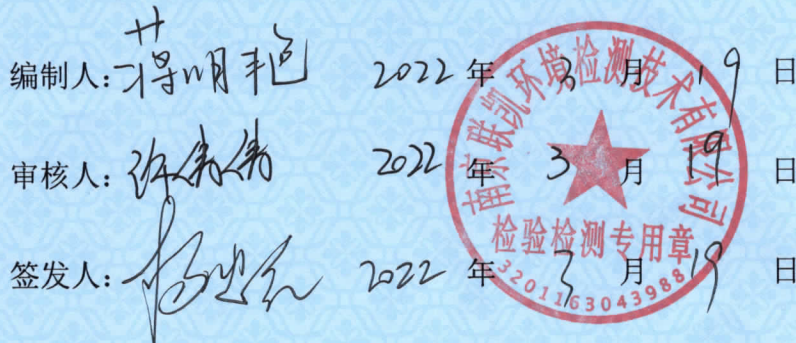 编制人：蒋明艳 2022 年 3 月 19 日
审核人： 2022 年 3 月 19 日
签发人： 2022 年 3 月 19 日
南京联凯环境检测技术有限公司
检验检测专用章
3201163043988